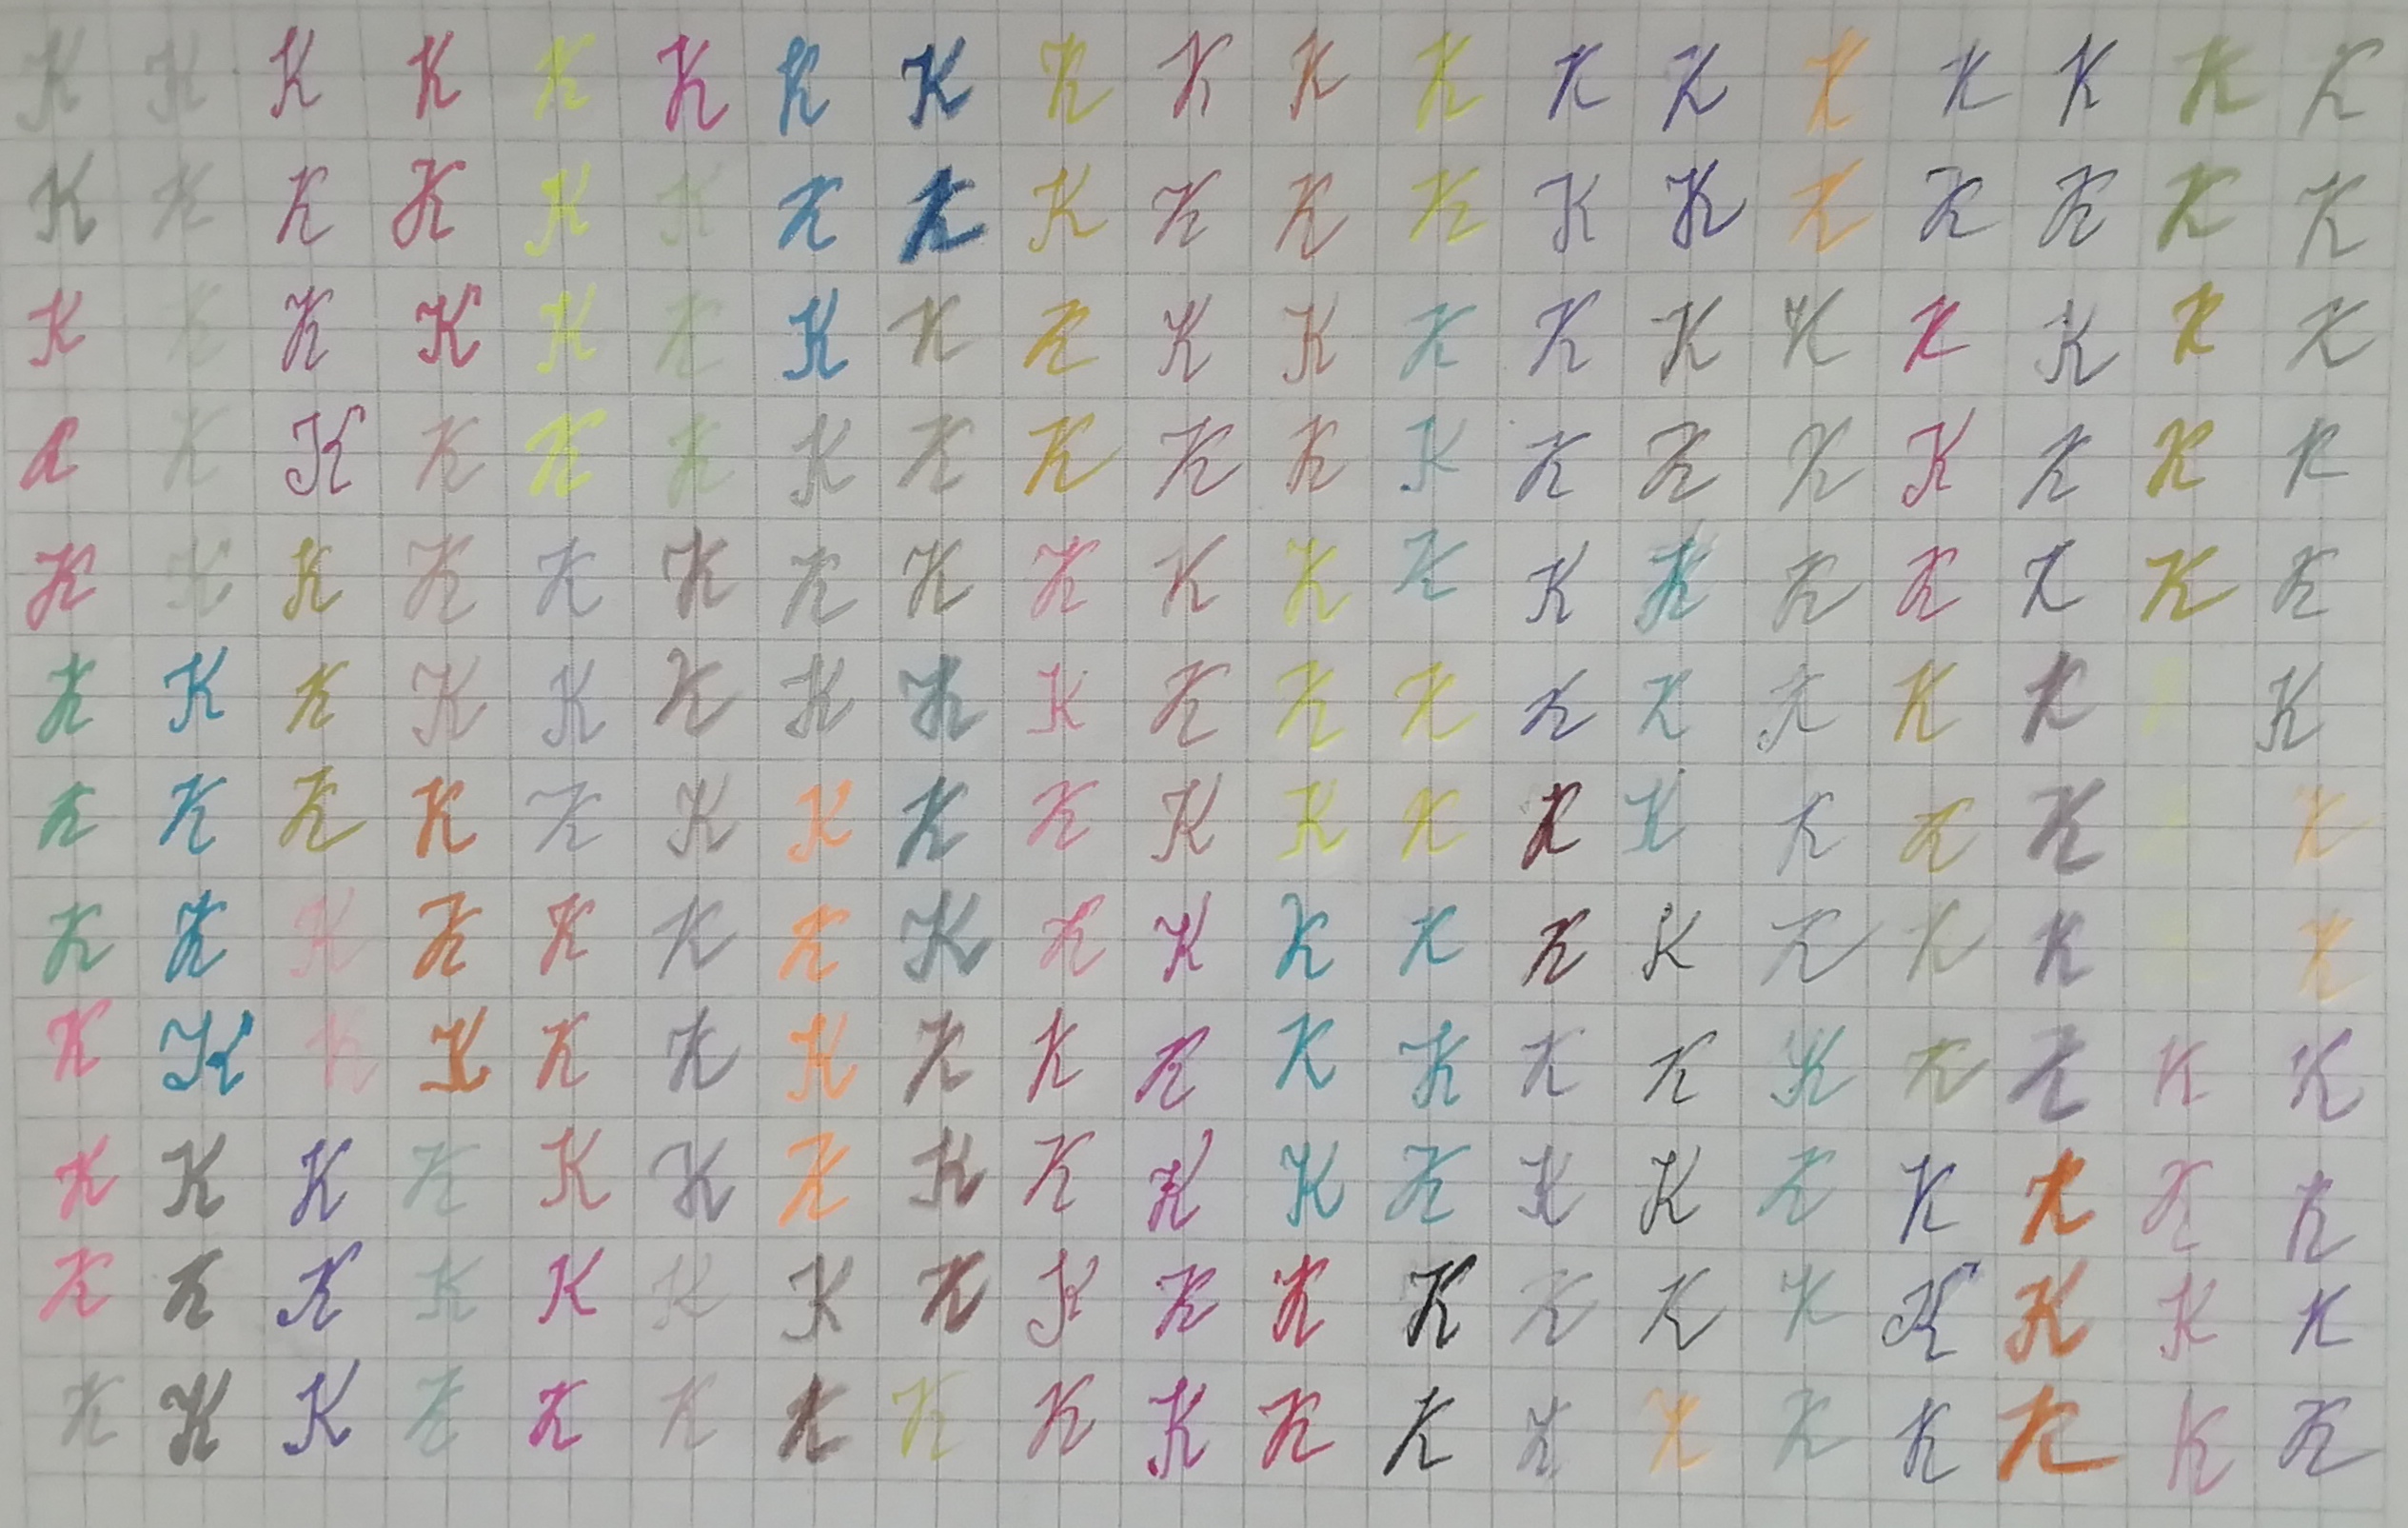 K K K K K K K K K K K K K K K K K K K
K K K K K K K K K K K K K K K K K K K
K K K K K K K K K K K K K K K K K K K
K K K K K K K K K K K K K K K K K K K
K K K K K K K K K K K K K K K K K K K
K K K K K K K K K K K K K K K K K K
K K K K K K K K K K K K K K K K K K
K K K K K K K K K K K K K K K K K K
K K K K K K K K K K K K K K K K K K K
K K K K K K K K K K K K K K K K K K K
K K K K K K K K K K K K K K K K K K K
K K K K K K K K K K K K K K K K K K K